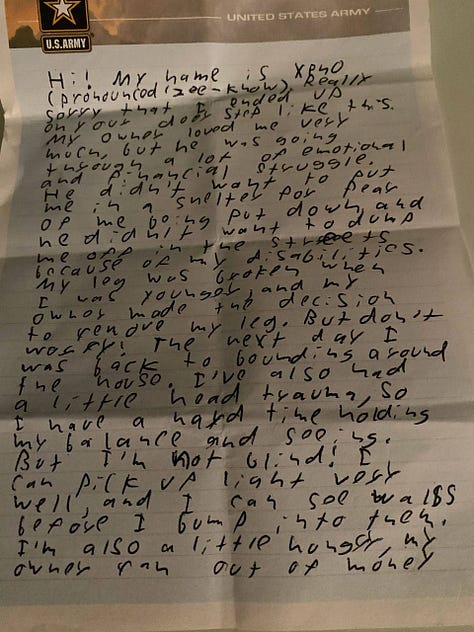 UNITED STATES ARMY
U.S.ARMY
Hi! My name is xeno
(pronounced zee-know). Really
sorry that I ended up
on your door step like this.
My owner loved me very
much, but he was going
through a lot of emotional
and financial struggle.
He didn't want to put
me in a shelter for fear
of me being put down, and
he didn't want to dump
me off in the streets
because of my disabilities.
My leg was broken when
I was younger, and my
owner made the decision
to remove my leg. But don't
worry! The next day I
was back to bounding around
the house. I've also had
a little head trauma, so
I have a hard time holding
my balance and seeing.
But I'm not blind! I
can pick up light very
well, and I can see walls
before I bump into them.
I'm also a little hungry, my
owner ran out of money